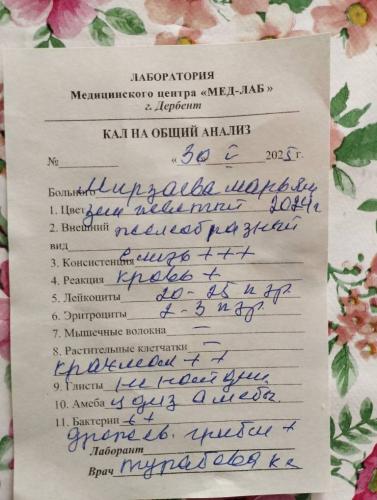 ЛАБОРАТОРИЯ
Медицинского центра «МЕД-ЛАБ»
г. Дербент
КАЛ НА ОБЩИЙ АНАЛИЗ
№ « 30 2025 г.
Больного Мирзаева Марьям
1. Цвет 2024 г
2. Внешний вид желеобразный
3. Консистенция Слизь +++
4. Реакция кровь +
5. Лейкоциты 20-25 п/зр.
6. Эритроциты 2-3 п/зр.
7. Мышечные волокна –
8. Растительные клетчатки –
крахмал ++
9. Глисты не найдены
10. Амеба амебы
11. Бактерии ++
дрожжев. грибки +
Лаборант
Врач